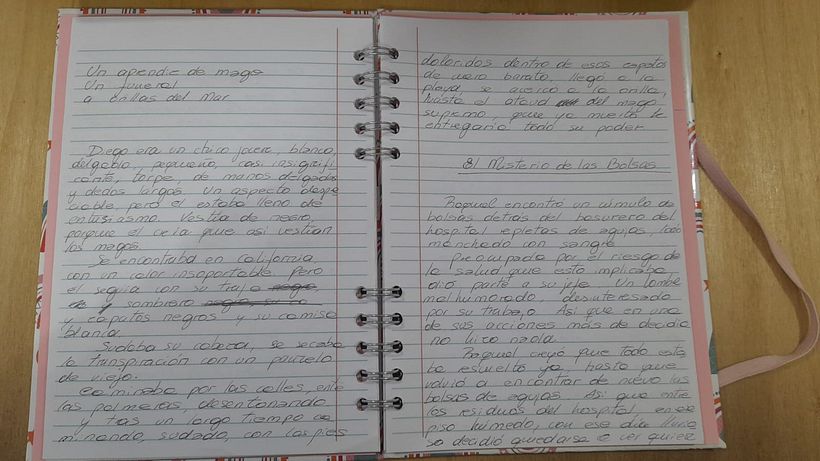 Un aprendiz de mago
Un funeral
a orillas del mar
Diego era un chico joven, blanco,
delgado, pequeño, casi insignifi
cante, torpe, de manos delgadas
y dedos largos. Un aspecto despre
ciable pero el estaba lleno de
entusiasmo. Vestía de negro,
porque el creía que así vestían
los magos.
Se encontraba en California
con un calor insoportable. Pero
el seguía con su traje negro
sombrero negro
y zapatos negros y su camisa
blanca.
Sudaba su cabeza, se secaba
la transpiración con un pañuelo
de viejo.
Caminaba por las calles, entre
las palmeras, desentonando
y tras un largo tiempo ca
minando, sudado, con los pies
doloridos dentro de esos zapatos
de cuero barato, llegó a la
playa, se acercó a la orilla,
hasta el ataud del mago
supremo, que ya muerto le
entregaría todo su poder.
8/ Misterio de las Bolsas
Raquel encontró un cúmulo de
bolsas detrás del basurero del
hospital repletas de agujas, todo
manchado con sangre.
Preocupada por el riesgo de
la salud que esto implicaba,
dió parte a su jefe. Un hombre
malhumorado, desinteresado
por su trabajo. Así que en una
de sus acciones más de decidia
no hizo nada.
Raquel creyó que todo esta
ba resuelto ya, hasta que
volvió a encontrar de nuevo las
bolsas de agujas. Así que entre
los residuos del hospital, en ese
piso húmedo, con ese día lluvio
so decidió quedarse a ver quien